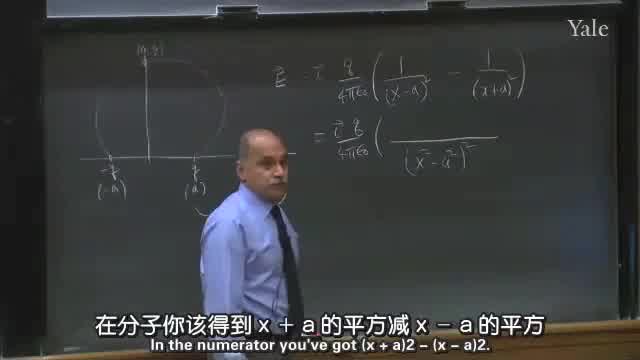 Yale
(0, y)
E = i q/4πε₀ ( 1/(x-a)² - 1/(x+a)² )
= i q/4πε₀ ( /(x²-a²)²
(-a) (a)
在分子你该得到 x + a 的平方减 x - a 的平方
In the numerator you've got (x + a)2 - (x - a)2.